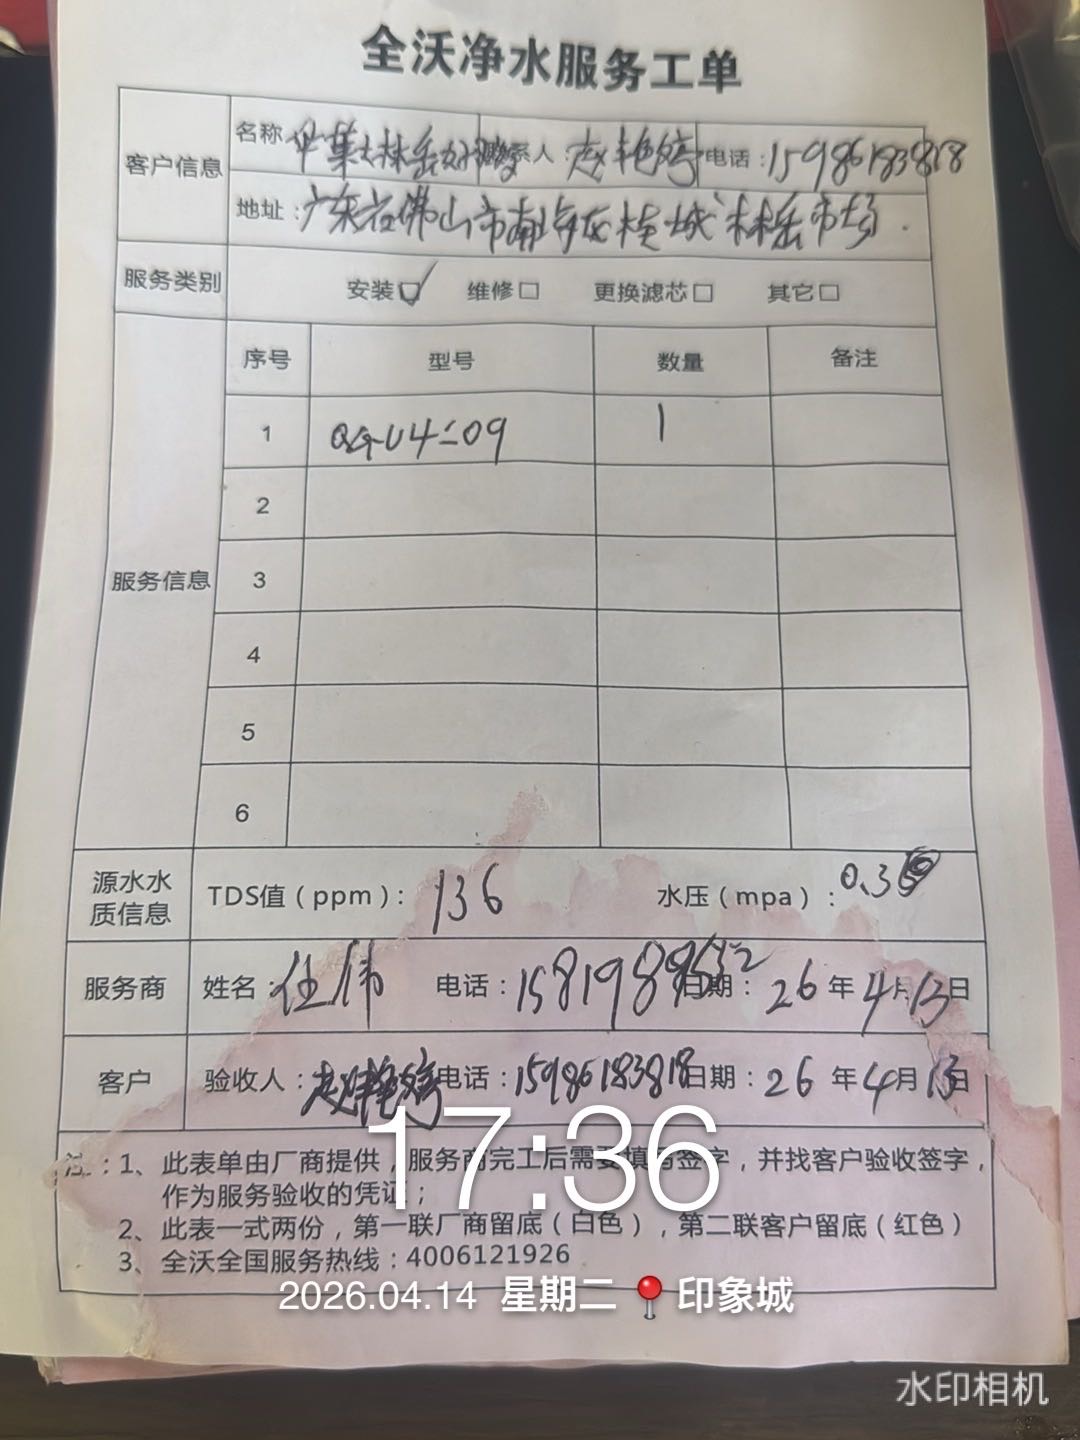 全沃净水服务工单
客户信息
名称 联系人：赵艳婷 电话：15986183818
地址：广东省佛山市南海区桂城 林岳市场
服务类别 安装☑ 维修□ 更换滤芯□ 其它□
服务信息
序号 型号 数量 备注
1 1
2
3
4
5
6
源水水质信息 TDS值（ppm）：136 水压（mpa）：0.3
服务商 姓名：任伟 电话： 日期：26年4月13日
客户 验收人：赵艳婷 电话：15986183818 日期：26年4月13日
注：1、此表单由厂商提供，服务商完工后需要填写签字，并找客户验收签字，
作为服务验收的凭证；
2、此表一式两份，第一联厂商留底（白色），第二联客户留底（红色）
3、全沃全国服务热线：4006121926
17:36
2026.04.14 星期二 印象城
水印相机